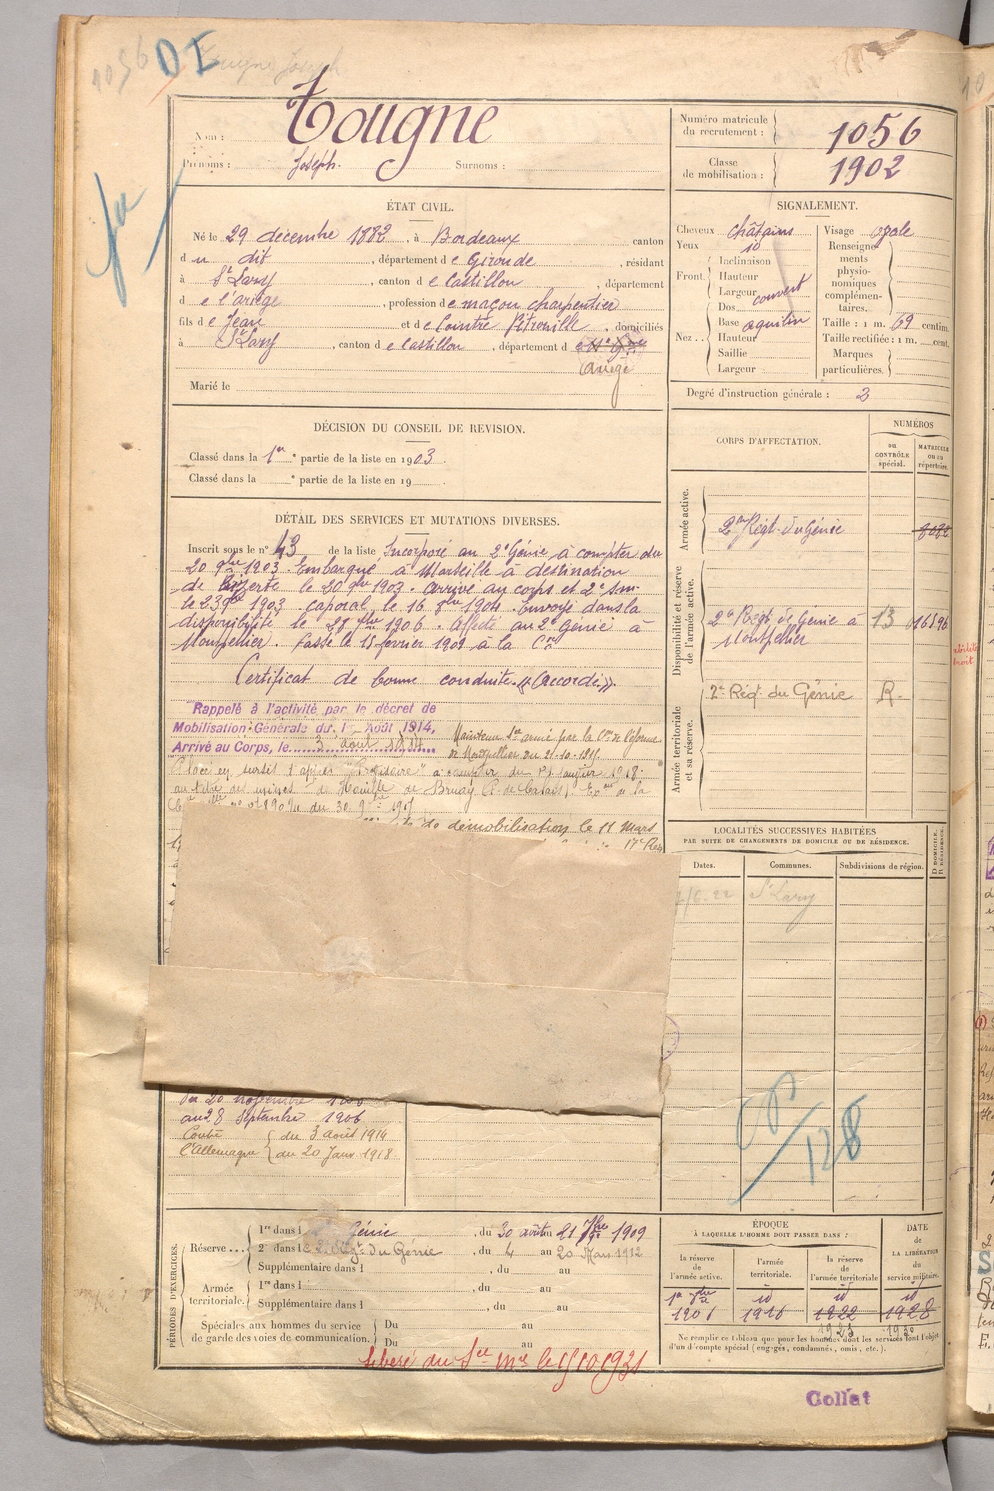 1056 DI Tougne Joseph
Nom : Tougne
Prénoms : Joseph. Surnoms :
Numéro matricule du recrutement : 1056
Classe de mobilisation : 1902
ÉTAT CIVIL.
Né le 29 décembre 1882, à Bordeaux canton
du dit, département de Gironde, résidant
à St Lary, canton de Castillon, département
de l'ariège, profession de maçon charpentier
fils de Jean et de Cointre Pétronille, domiciliés
à St Lary, canton de Castillon, département d
Ariège
Marié le
SIGNALEMENT.
Cheveux châtains
Yeux id
Front. Inclinaison
Hauteur
Largeur couvert
Nez.. Dos
Base aquilin
Hauteur
Saillie
Largeur
Visage ovale
Renseignements physionomiques complémentaires.
Taille : 1 m. 69 centim.
Taille rectifiée : 1 m. cent.
Marques particulières.
Degré d'instruction générale : 3
DÉCISION DU CONSEIL DE REVISION.
Classé dans la 1re partie de la liste en 1903.
Classé dans la e partie de la liste en 19
DÉTAIL DES SERVICES ET MUTATIONS DIVERSES.
Inscrit sous le n° 43 de la liste Incorporé au 2e Génie à compter du
20 9bre 1903. Embarqué à Marseille à destination
de Bizerte le 20 9bre 1903. Arrivé au corps et 2e Sap.
le 23 9bre 1903. Caporal le 16 8bre 1904. Envoyé dans la
disponibilité le 28 7bre 1906. Affecté au 2e Génie à
Montpellier. Passé le 15 février 1909 à la
Certificat de bonne conduite "(Accordé)".
Rappelé à l'activité par le décret de
Mobilisation Générale du 1er Août 1914,
Arrivé au Corps, le 3 août 1914
Maintenu Sce armé par la Con de réforme
de Montpellier du 21-10-1915.
Placé en sursis d'appel à compter du janvier 1918
au titre des mines de Houille de Bruay P. de Calais,
du 30 9bre 1917
de démobilisation le 11 Mars
17e Rég
du 20 novembre
au 28 septembre 1906
Contre l'Allemagne du 3 août 1914
au 20 Janv. 1918
CORPS D'AFFECTATION.
NUMÉROS
au CONTRÔLE spécial.
MATRICULE ou au répertoire.
Armée active.
2e Régt. du Génie
Disponibilité et réserve de l'armée active.
2e Régt. de Génie à 13 016596
Montpellier
Armée territoriale et sa réserve.
2e Régt. du Génie R.
LOCALITÉS SUCCESSIVES HABITÉES
PAR SUITE DE CHANGEMENTS DE DOMICILE OU DE RÉSIDENCE.
Dates. Communes. Subdivisions de région. D DOMICILE. R RÉSIDENCE.
/6.22 St Lary
128
PÉRIODES D'EXERCICES.
Réserve... 1re dans l Génie, du 30 août au 21 7bre 1909
2e dans le 2e Régt du Génie, du 4 au 20 Mars 1912
Supplémentaire dans l, du au
Armée territoriale. 1re dans l, du au
Supplémentaire dans l, du au
Spéciales aux hommes du service de garde des voies de communication. Du au
Du au
ÉPOQUE
À LAQUELLE L'HOMME DOIT PASSER DANS :
la réserve de l'armée active.
l'armée territoriale.
la réserve de l'armée territoriale
DATE de LA LIBÉRATION du service militaire.
id id id
1916 1922 1928
Ne remplir ce tableau que pour les hommes dont les services font l'objet
d'un décompte spécial (engagés, condamnés, omis, etc.).
Libéré du Sce Mre le 15 10 1931
Collat